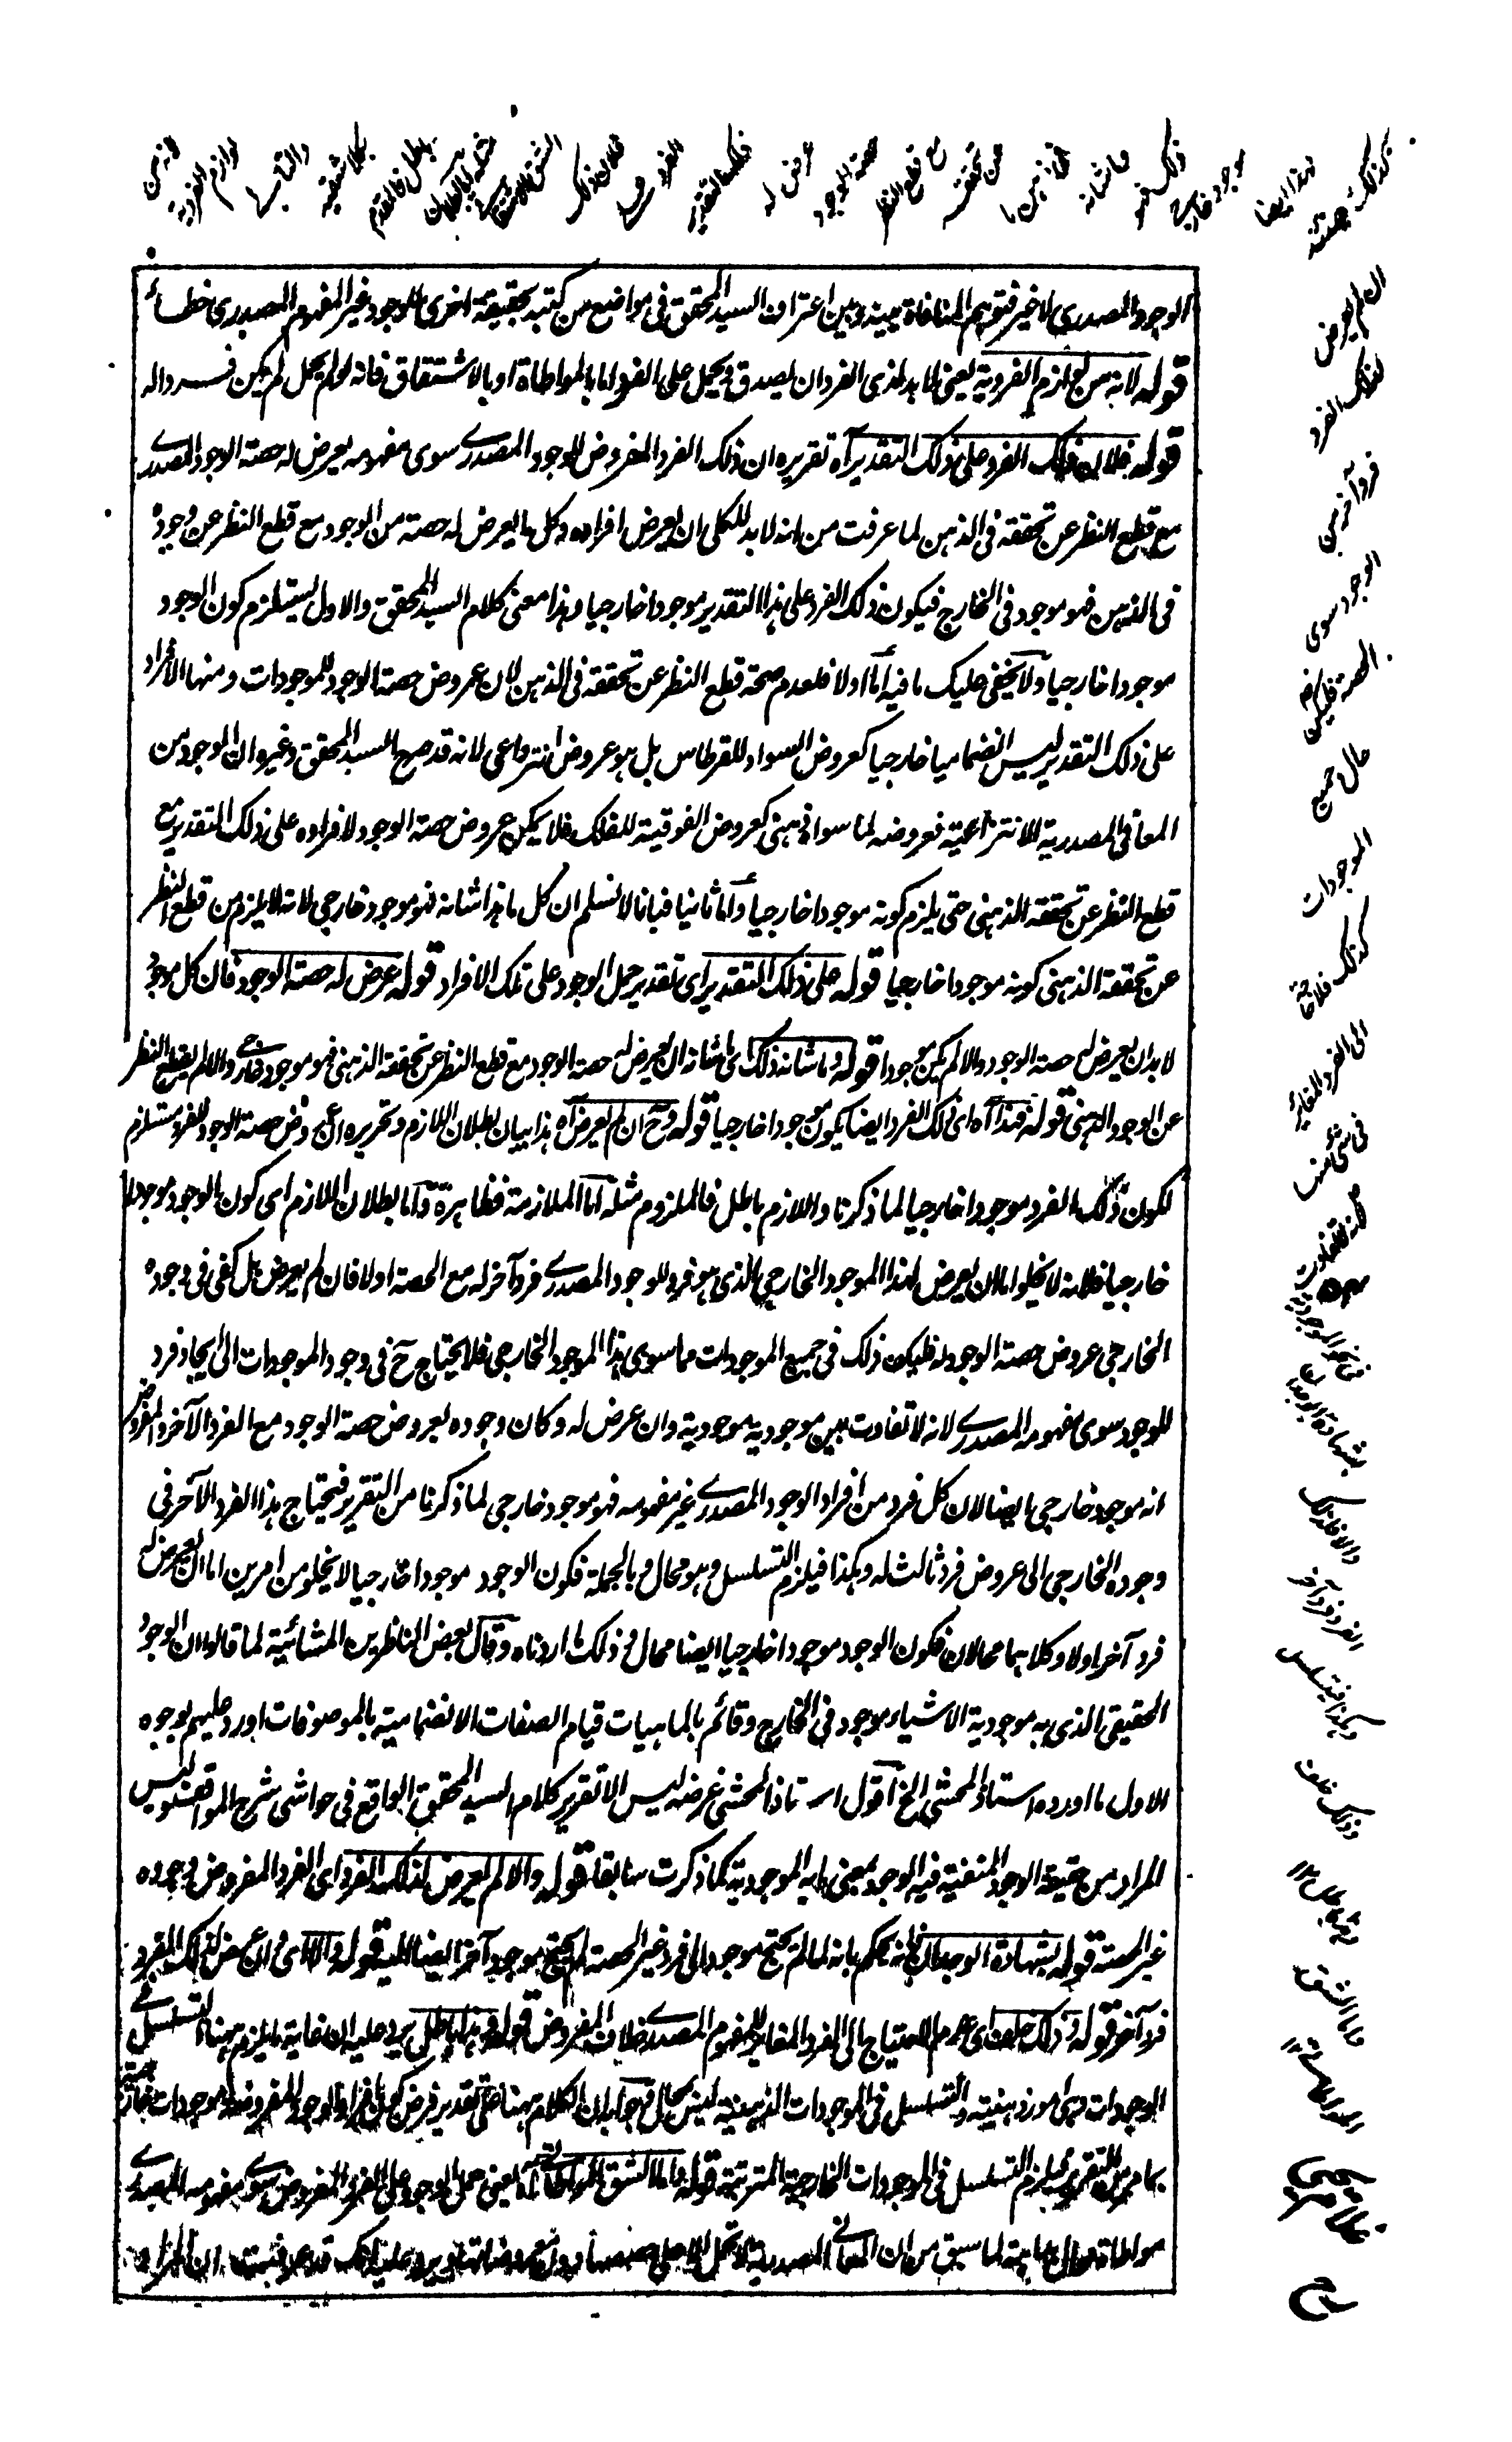 الوجود المصدرى لا غير فتوهم المنافاة بينه وبين اعتراف السيد المحقق فى مواضع من كتبه بحقيقة اخرى للوجود غير المفهوم المصدرى خطأ
قوله لانه من لوازم الفردية يعنى لا بد لذى الفرد ان يصدق ويحمل على الفرد اما بالمواطاة او بالاشتقاق فانه لو لم يحمل لم يكن فردا له
قوله فلان ذلك الفرد على ذلك التقدير آه تقريره ان ذلك الفرد المفروض للوجود المصدرے سوى مفهومه يعرض له حصة الوجود المصدرے
مع قطع النظر عن تحققه فى الذهن لما عرفت من انه لا بد للكلى ان يعرض افراده وكل ما يعرض له حصة من الوجود مع قطع النظر عن وجوده
فى الذهن فهو موجود فى الخارج فيكون ذلك الفرد على هذا التقدير موجودا خارجيا وهذا معنى كلام السيد المحقق والاول يستلزم كون الوجود
موجودا خارجيا ولا يخفى عليك ما فيه اما اولا فلعدم صحة قطع النظر عن تحققه فى الذهن لان عروض حصة الوجود للموجودات ومنها الافراد
على ذلك التقدير ليس انضماميا خارجيا كعروض السواد للقرطاس بل هو عروض انتزاعى لانه قد صرح السيد المحقق وغيره ان الوجود من
المعانى المصدرية الانتزاعية فعروضه لما سواه ذهنى كعروض الفوقية للفلك فلا يمكن عروض حصة الوجود لافراده على ذلك التقدير مع
قطع النظر عن تحققه الذهنى حتى يلزم كونه موجودا خارجيا واما ثانيا فبانا لا نسلم ان كل ما هذا شانه فهو موجود خارجى لانه لا يلزم من قطع النظر
عن تحققه الذهنى كونه موجودا خارجيا قوله على ذلك التقدير اى تقدير حمل الوجود على تلك الافراد قوله عرض له حصة الوجود فان كل موجود
لا بد ان يعرض له حصة الوجود والا لم يكن موجودا قوله وما شانه ذلك اى ما شانه ان يعرض له حصة الوجود مع قطع النظر عن تحققه الذهنى فهو موجود خارجى والا لم يقطع النظر
عن الوجود الذهنى قوله فهذا آه اى ذلك الفرد ايضا يكون موجودا خارجيا قوله وح ان لم يعرض آه هذا بيان بطلان اللازم وتحريره ان عروض حصة الوجود للفرد مستلزم
لكون ذلك الفرد موجودا خارجيا لما ذكرنا واللازم باطل فالملزوم مثله اما الملازمة فظاهرة واما بطلان اللازم اى كون الوجود موجودا
خارجيا فلانه لا يخلو اما ان يعرض لهذا الموجود الخارجى الذى هو فرد للوجود المصدرے فرد آخر له مع الحصة او لا فان لم يعرض بل كفى فى وجوده
الخارجى عروض حصة الوجود له فليكن ذلك فى جميع الموجودات مما سوى هذا الموجود الخارجى فلا يحتاج ح فى وجود الموجودات الى ايجاد فرد
للوجود سوى مفهومه المصدرے لانه لا تفاوت بين موجودية وموجودية وان عرض له وكان وجوده بعروض حصة الوجود مع الفرد الآخر والمفروض
انه موجود خارجى ايضا لان كل فرد من افراد الوجود المصدرے غير مفهومه فهو موجود خارجى لما ذكرنا من التقرير فيحتاج هذا الفرد الآخر فى
وجوده الخارجى الى عروض فرد ثالث له وهكذا فيلزم التسلسل وهو محال وبالجملة فكون الوجود موجودا خارجيا لا يخلو من امرين اما ان يعرض له
فرد آخر او لا وكلاهما محالان فكون الوجود موجودا خارجيا ايضا محال وذلك ما اردناه وقال بعض الناظرين المشائية لما قالوا ان الوجود
الحقيقى الذى به موجودية الاشياء موجود فى الخارج وقائم بالماهيات قيام الصفات الانضمامية بالموصوفات اورد عليهم بوجوه
الاول ما اورده استاذ المحشى الخ اقول استاذ المحشى غرضه ليس الا تقرير كلام السيد المحقق الواقع فى حواشى شرح المواقف وليس
المراد من حقيقة الوجود المنفية فيه الوجود بمعنى ما به الموجودية كما ذكرت سابقا قوله والا لم يعرض لذلك الفرد اى الفرد المفروض وجوده
غير الحصة قوله بشهادة الوجدان فانه يحكم بانه لما لم يحتج موجود الى فرد غير الحصة لم يحتج موجود آخر ايضا اليه قوله والا اى وان عرض لذلك الفرد
فرد آخر قوله وذلك خلف اى عدم الاحتياج الى الفرد المغاير للمفهوم المصدرے خلاف المفروض قوله وهذا باطل يرد عليه ان غاية ما يلزم ههنا التسلسل فى
الوجودات وهى امور ذهنية والتسلسل فى الموجودات الذهنية ليس بمحال وجوابه ان الكلام ههنا على تقدير فرض كون افراد الوجود المفروضة موجودات خارجية
كما مر فى التقرير فيلزم التسلسل فى الموجودات الخارجية المترتبة قوله واما الشق الثانى آه يعنى حمل الوجود على الفرد المفروض سوى مفهومه المصدرے
مواطاة لما سبق من ان المعانى المصدرية لا تحمل الا على حصصها دون معروضاتها ويرد عليه انك قد عرفت ان المراد
كذلك حصته
وهذا ايضا
موجود خارجى
ذلك فهو
وما شانه
فى الذهن
عن تحققه
مع قطع النظر
حصة الوجود
عرض له
ذلك التقدير
الفرد على
فلان ذلك
باطل فالمقدم
بكلا شقيه
والتالى
لوازم الفردية
لانه من
ان لم يعرض
لذلك الفرد
فرد آخر من
الوجود سوى
الحصة فليكن
حال جميع
الموجودات
كذلك فلا حاجة
الى الفرد المغاير
فى شئ منها
بشهادة الوجدان
والا فلذلك
الفرد فرد آخر
وهكذا فيتسلسل
وذلك خلف
واما الشق
غلام يحيى